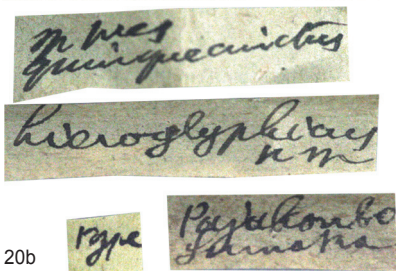 pres
quinquecinctus
hieroglyphicus
n m
Type
Pajakombo
Sumatra
20b